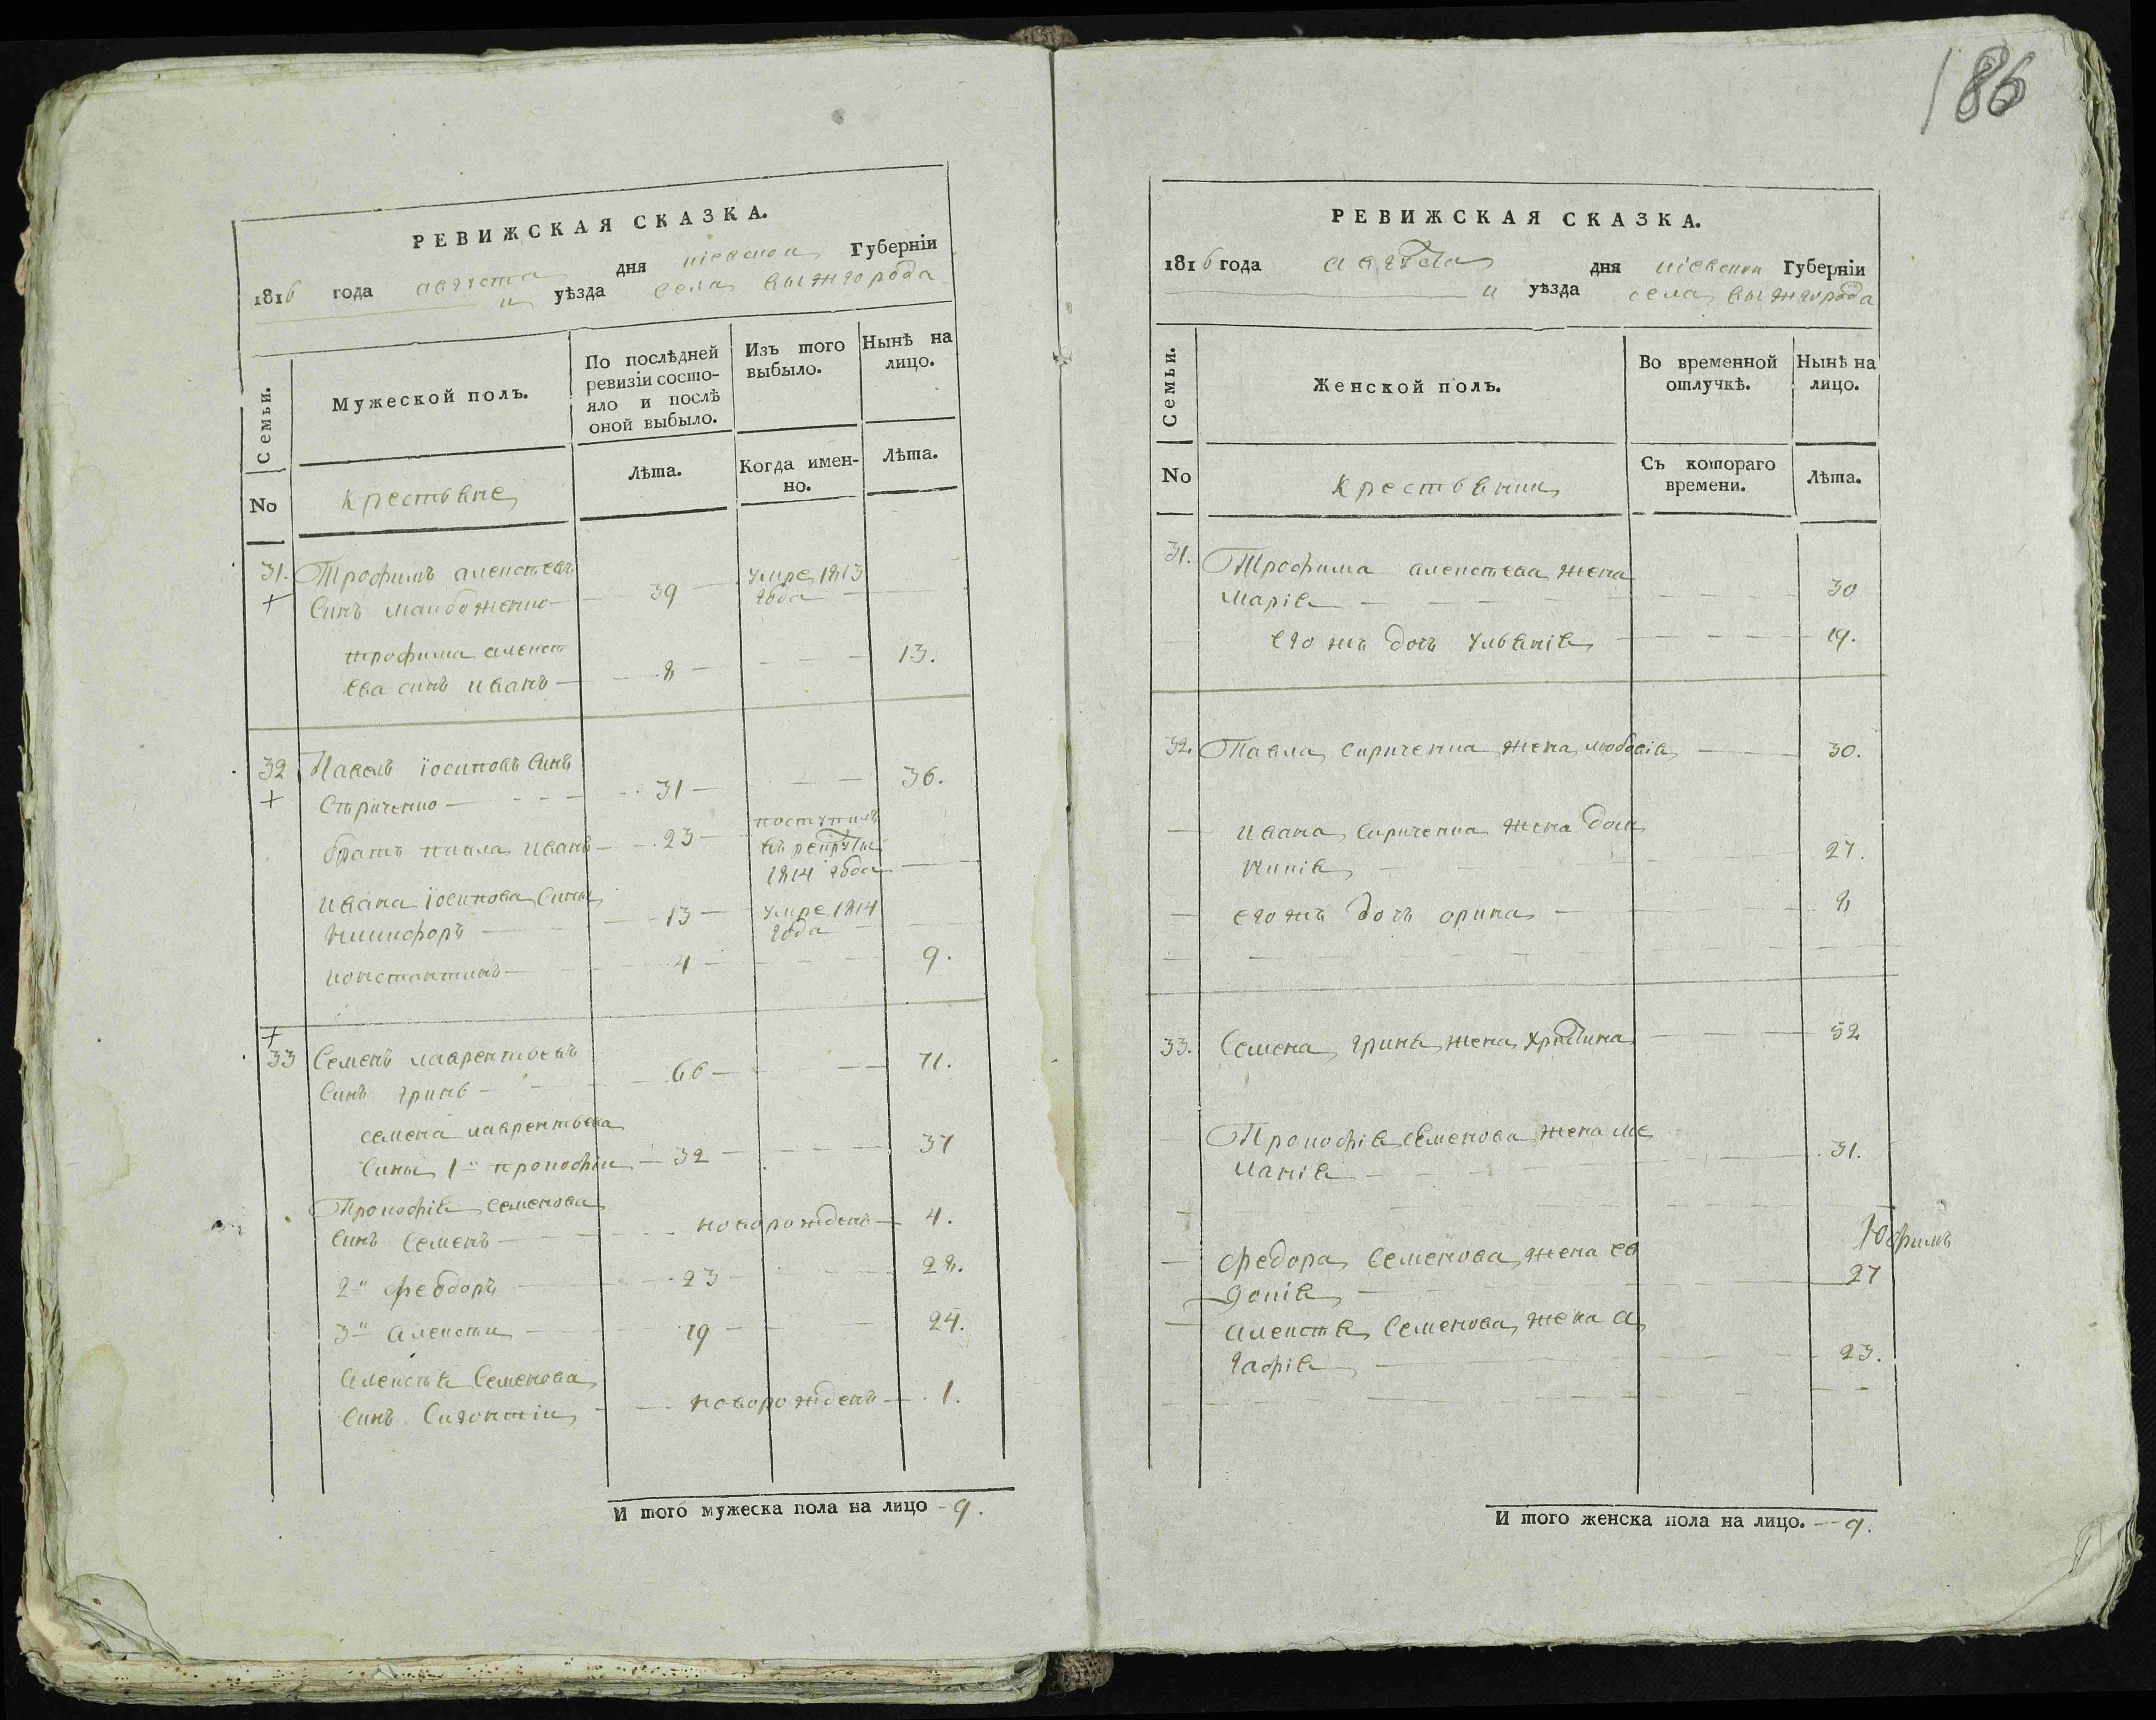 186
РЕВИЖСКАЯ СКАЗКА.
1816 года августа дня кіевской Губерніи
и уѣзда села вышгорода
Семьи.
Мужеской полъ.
По послѣдней ревизіи состояло и послѣ оной выбыло.
Изъ того выбыло.
Нынѣ на лицо.
No
крестьяне
Лѣта.
Когда именно.
Лѣта.
31. Трофимъ алексѣевъ
+ синъ 39 умре 1813 года
трофима алексѣ
ева синъ иванъ 8 13.
32 Павелъ іосиповъ синъ
+ Стриченко 31 36.
братъ павла иванъ 23 поступилъ въ рекруты 1814 года
ивана іосипова сины
никифоръ 13 умре 1814 года
константинъ 4 9.
+
33 Семенъ лаврентьевъ
синъ гринь 66 71.
семена лаврентьева
сины 1й прокофіи 32 37
Прокофія семенова
синъ семенъ новорожденъ 4.
2й феодоръ 23 28.
3й алексѣи 19 24.
Алексѣя семенова
синъ новорожденъ 1.
И того мужеска пола на лицо 9.
РЕВИЖСКАЯ СКАЗКА.
1816 года августа дня кіевской Губерніи
и уѣзда села вышгорода
Семьи.
Женской полъ.
Во временной отлучкѣ.
Нынѣ на лицо.
No
крестьянки
Съ котораго времени.
Лѣта.
31. Трофима алексѣева жена
марія 30
его жъ дочь ульянія 19.
32. Павла жена 30.
ивана жена дом
никія 27.
его жъ дочь орина 8
33. Семена гриня жена христина 52
Прокофія семенова жена ме
ланія 31.
федора семенова жена ев
докія 27
алексѣя семенова жена а
гафія 23.
И того женска пола на лицо. 9.